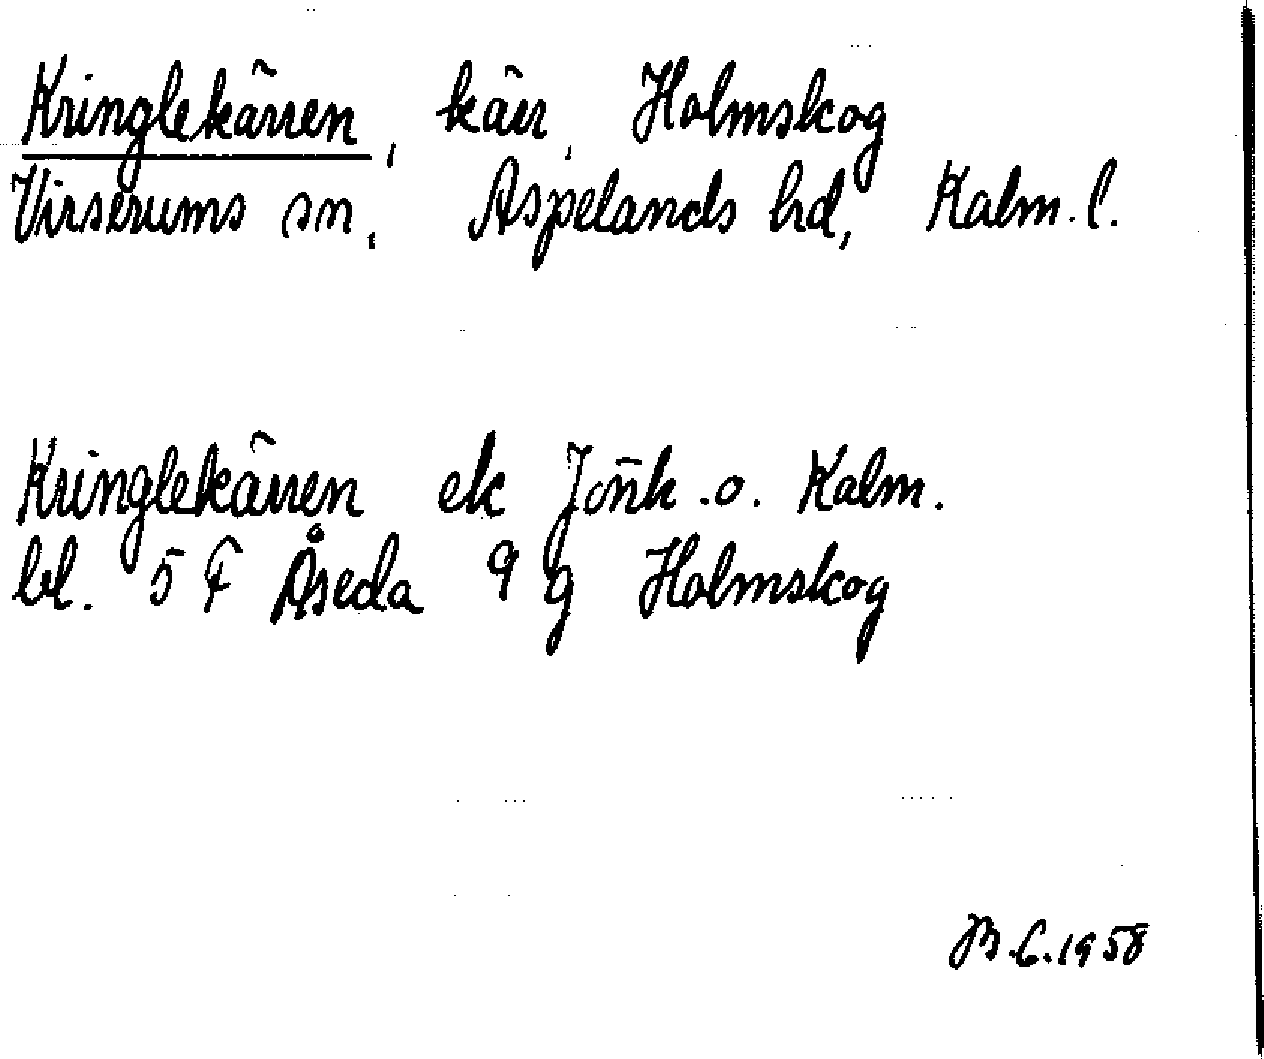 Kringlekärren, kärr, Holmskog
Virserums sn, Aspelands hd, Kalm. l.
Kringlekärren ek Jönk. o. Kalm.
bl. 5 F Åseda 9 g Holmskog
JB. 6. 1958